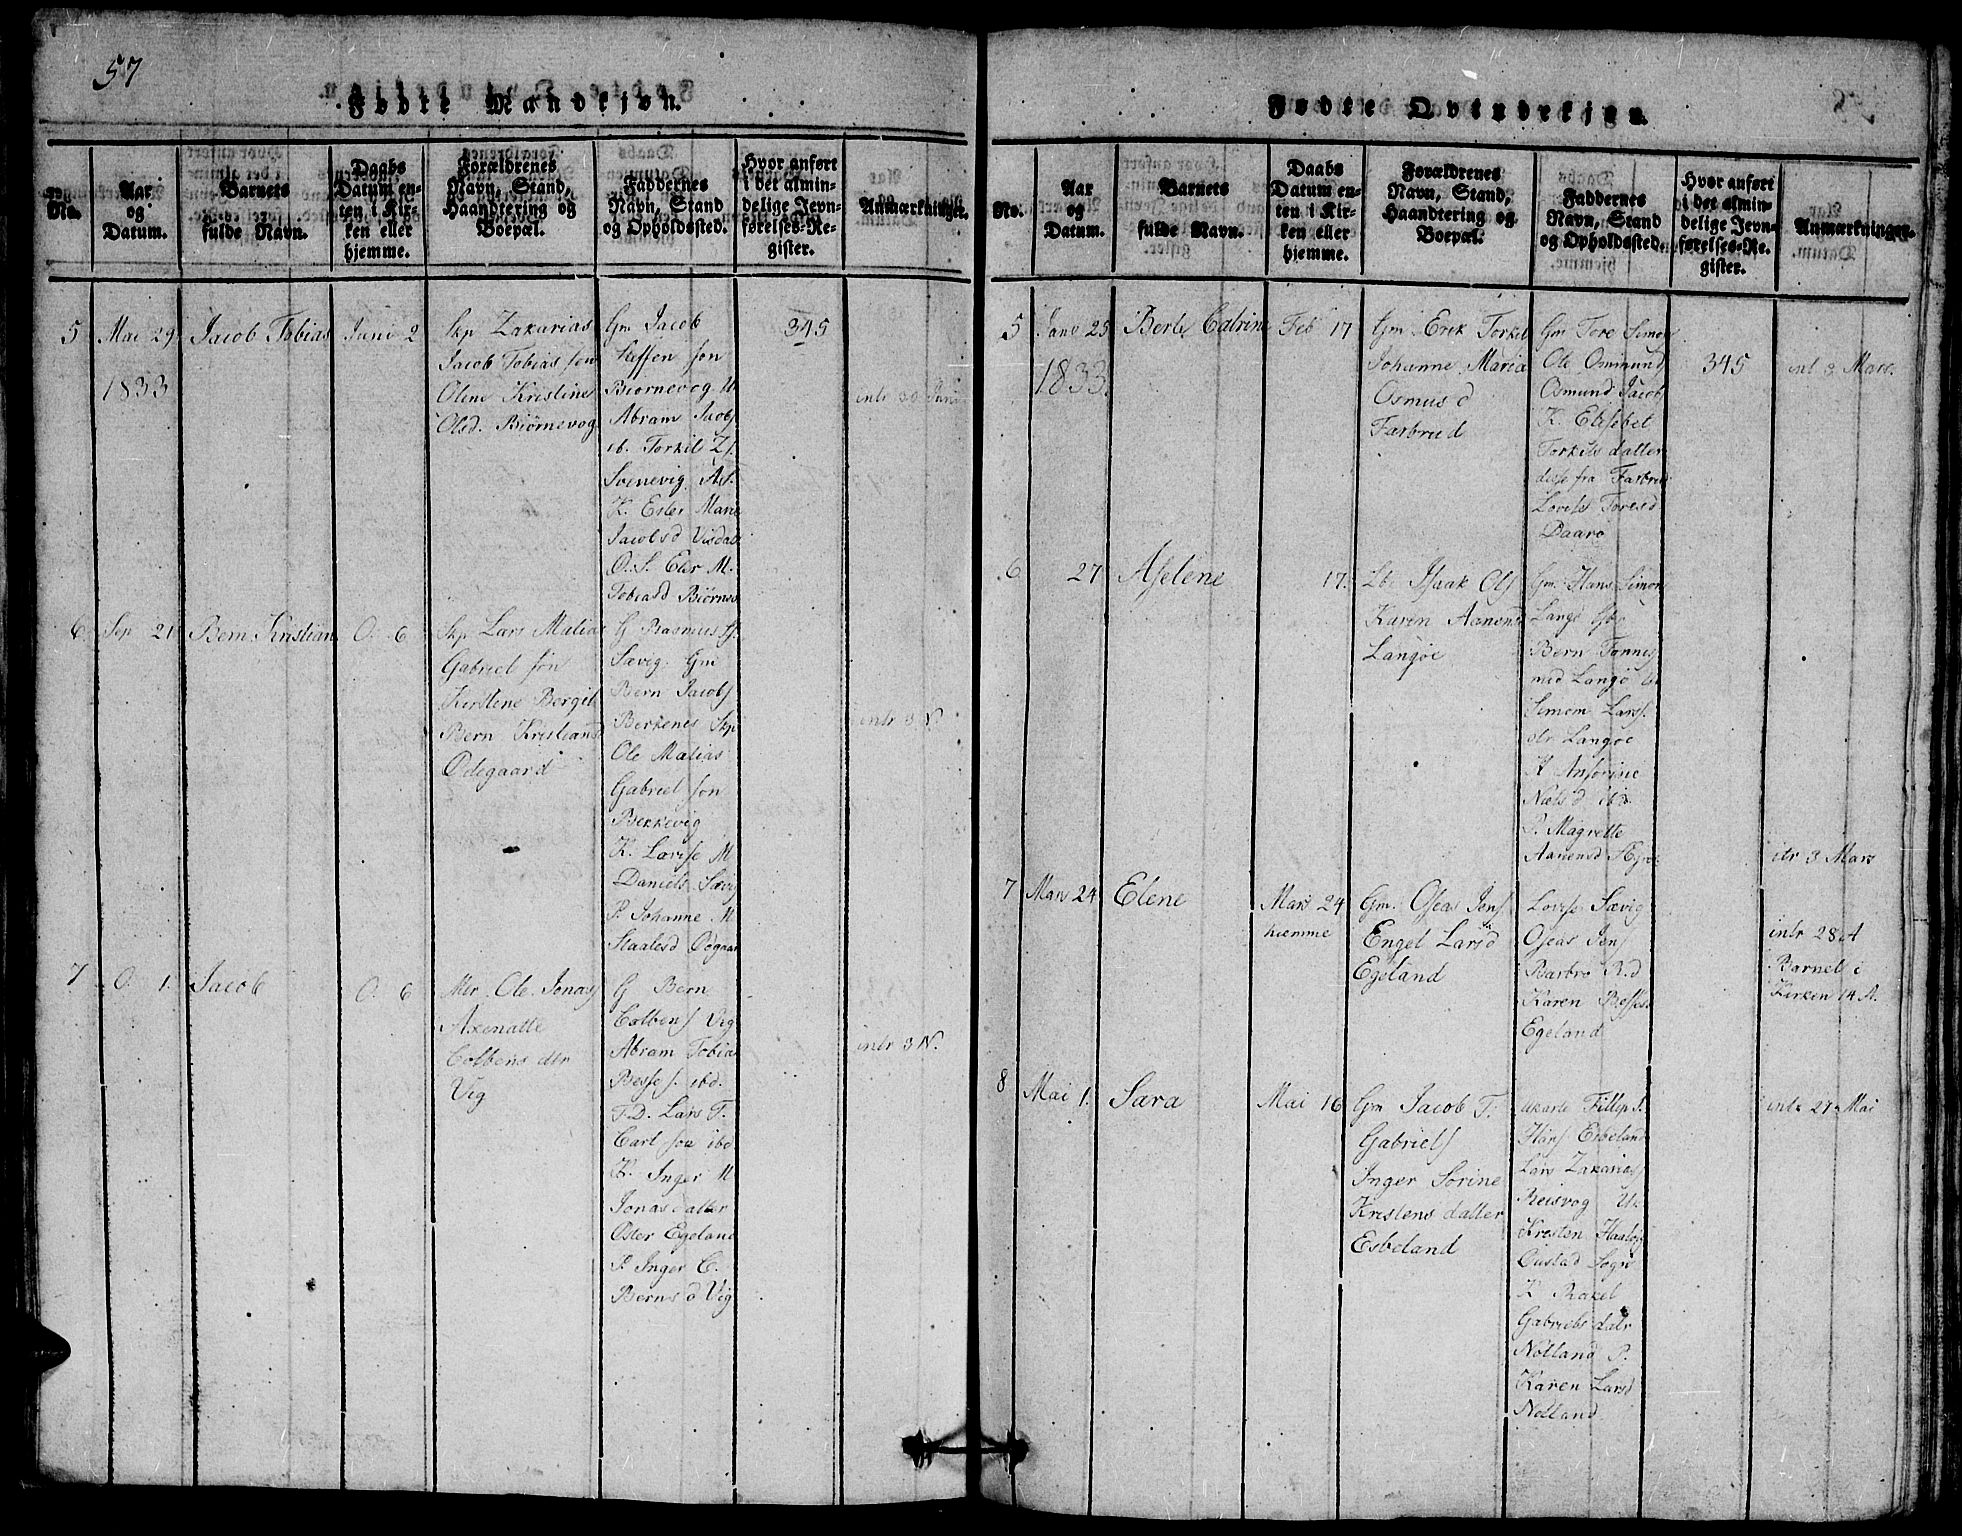 57
Fødte Mandkjøn.
No.
Aar
og
Datum.
Barnets
fulde Navn.
Daabs
Datum en-
ten i Kir-
ken eller
hjemme.
Forældrenes
Navn, Stand,
Haandtering og
Boepæl.
Faddernes
Navn, Stand
og Opholdssted.
Hvor anført
i det almin-
delige Jevn-
førelses-Re-
gister.
Anmærkninger.
5
Mai 29
1833
Jacob Tobias
Juni 2
Skp Zakarias
Jacob Tobias søn
Oline Kristine
Olsd. Biørnevog
Gm Jacob
Steffen søn
Biornevog U
Abram Jacobs
ib. Torkil Zs.
Svenevig
K. Ester Marie
Jacobsd
Tobiasd Biørnev
345
intr 30 Juni
6
Sep 21
Bern Kristian
O. 6
Skp Lars Matias
Gabriel søn
Kirstene Borgit
Bern Kristians
Odegaard
G Rasmus
Sævig. Gm
Bern Jacobs
Berkenes Skp
Ole Matias
Gabriel søn
Bekkevig
K. Lovise M
Daniels. Sævig
P. Johanne M
Staalesd Odgaar
intr 3 N
7
O. 1.
Jacob
O. 6
Mtr. Ole Jonas
Axenatte
Colbens dtr
Vig
G Bern
Colbens Vig
Abram Tobias
Besses. ibd.
T.D. Lars T.
Carl søn ibd
K. Inger M
Jonas datter
Oster Egeland
P Inger C.
Berns d Vig
intr 3 N.
58
Fødte Qvindekjøn.
No.
Aar
og
Datum.
Barnets
fulde Navn.
Daabs
Datum en-
ten i Kir-
ken eller
hjemme.
Forældrenes
Navn, Stand,
Haandtering og
Boepæl.
Faddernes
Navn, Stand
og Opholdssted.
Hvor anført
i det almin-
delige Jevn-
førelses-Re-
gister.
Anmærkninger.
5
Janv 25
1833.
Berte Catrine
Feb 17
Gm. Erik Torkil
Johanne Maria
Osmus d
Farbrud
Gm Tore Simon
Ole Ommund
Osmund Jacobs
K. Elisebet
Torkils datter
disse fra Farbrud
Lovise Toresd
Daarø
345
int 3 Mars.
6
27
Aselene
17.
Isaak Ols
Karen Aanons
Langøe
Gm. Hans Simon
Langø
Bern Tønnes
med Langø
Simom Lars
Langøe
K Ansorine
Niels d ib
P. Magrette
Aanensd
itr 3 Mars
7
Mars 24
Elene
Mars 24
hiemme
Gm. Oseas Jens
Engel Larsd
Egeland
Lovise Sævig
Oseas Jens
Barbro R.d
Karen Besses
Egeland
intr 28 A
Barnet i
Kirken 14 A.
8
Mai 1.
Sara
Mai 16
Gm Jacob T.
Gabriels
Inger Sorine
Kristens datter
Esbeland
Fillip S.
Hans Esbeland
Lars Zakarias
Reisvog U.
Kresten
Oustad Sogn
K Rakel
Gabriels datr
Nolland P.
Karen Larsd
Nolland
intr 27 Mai